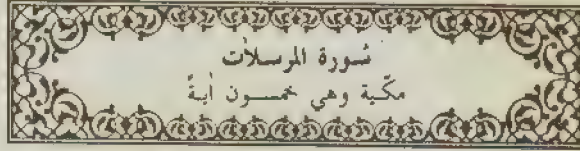 سورة المرسلات
مكّية وهي خمسون أيةً